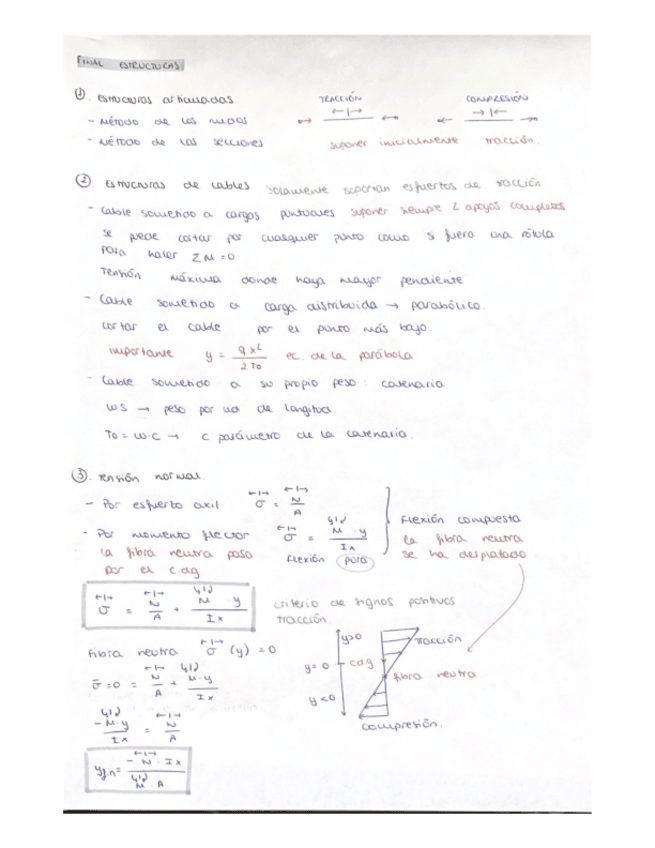 FINAL ESTRUCTURAS
①. Estructuras articuladas.
- Método de los nudos
- Método de las secciones
TRACCIÓN
COMPRESIÓN
suponer inicialmente tracción.
②. Estructuras de cables solamente soportan esfuertos de tracción
- Cable sometido a cargas puntuales suponer siempre 2 apoyos completos
se puede cortar por cualquier punto como si fuera una rótula
para hacer ΣM=0
Tensión máxima donde haya mayor pendiente
- Cable sometido a carga distribuida → parabólico.
cortar el cable por el punto más bajo.
importante y = qx²/2To ec. de la parábola
- Cable sometido a su propio peso: catenaria
ws → peso por ud de longitud.
To = w·c → c parámetro de la catenaria.
③. Tensión normal.
- Por esfuerzo axil σ = N/A
- Por momento flector σ = M·y/Ix
la fibra neutra pasa
por el c.dg
Flexión pura
Flexión compuesta
la fibra neutra
se ha desplazado
σ = N/A + M·y/Ix
criterio de signos positivos
tracción.
Fibra neutra σ(y) = 0
σ=0 = N/A + M·y/Ix
-M·y/Ix = N/A
yf.n = -N·Ix/M·A
y>0
tracción
y=0
cdg
fibra neutra
y<0
compresión.